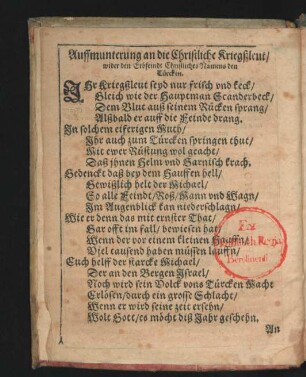 Auffmunterung an die Christliche Kriegßleut/
wider den Erbfeindt Christliches Namens den
Türcken.
IHr Kriegßleut seyd nur frisch vnd keck/
Gleich wie der Hauptman Scanderbeck/
Dem Blut auß seinem Rücken sprang/
Alßbald er auff die Feinde drang.
In solchem eiferigen Muth/
Ihr auch zum Türcken springen thut/
Mit ewer Rüstung wol geacht/
Daß jhnen Helm vnd Harnisch krach.
Gedenckt daß bey dem Hauffen hell/
Gewißlich helt der Michael/
So alle Feindt/Roß/Mann vnd Wagn/
Im Augenblick kan niederschlagn/
Wie er denn das mit ernster That/
Gar offt im fall/bewiesen hat
Wenn der vor einem kleinen Hauffn/
Viel tausend haben müssen lauffn/
Euch helff der starcke Michael/
Der an den Bergen Israel/
Noch wird sein Volck vons Türcken Macht
Erlösen/durch ein grosse Schlacht/
Wenn er wird seine zeit ersehn/
Wolt Gott/es möcht diß Jahr geschehn.
An
Ex
Berolinensi